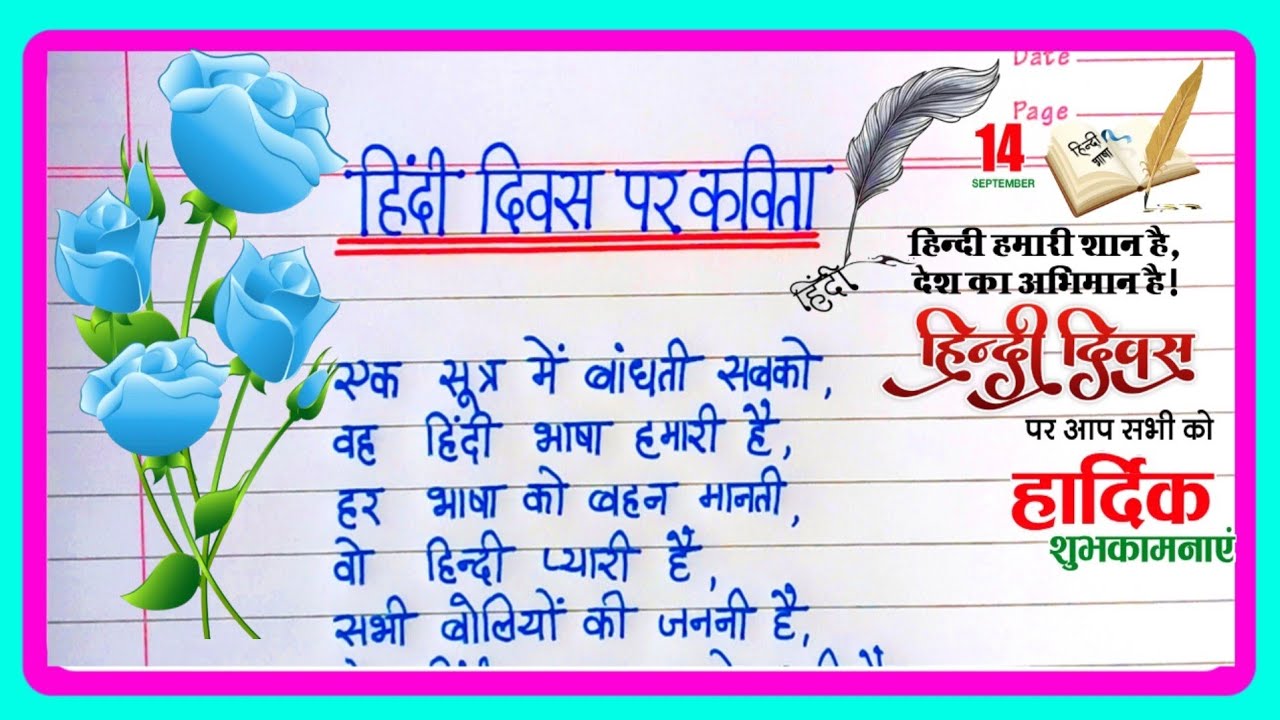 Date
Page
हिंदी दिवस पर कविता
एक सूत्र में बांधती सबको,
वह हिंदी भाषा हमारी है,
हर भाषा को बहन मानती,
वो हिन्दी प्यारी है,
सभी बोलियों की जननी है,
हिंदी
14
SEPTEMBER
हिन्दी
भाषा
हिन्दी हमारी शान है,
देश का अभिमान है!
हिन्दी दिवस
पर आप सभी को
हार्दिक
शुभकामनाएं